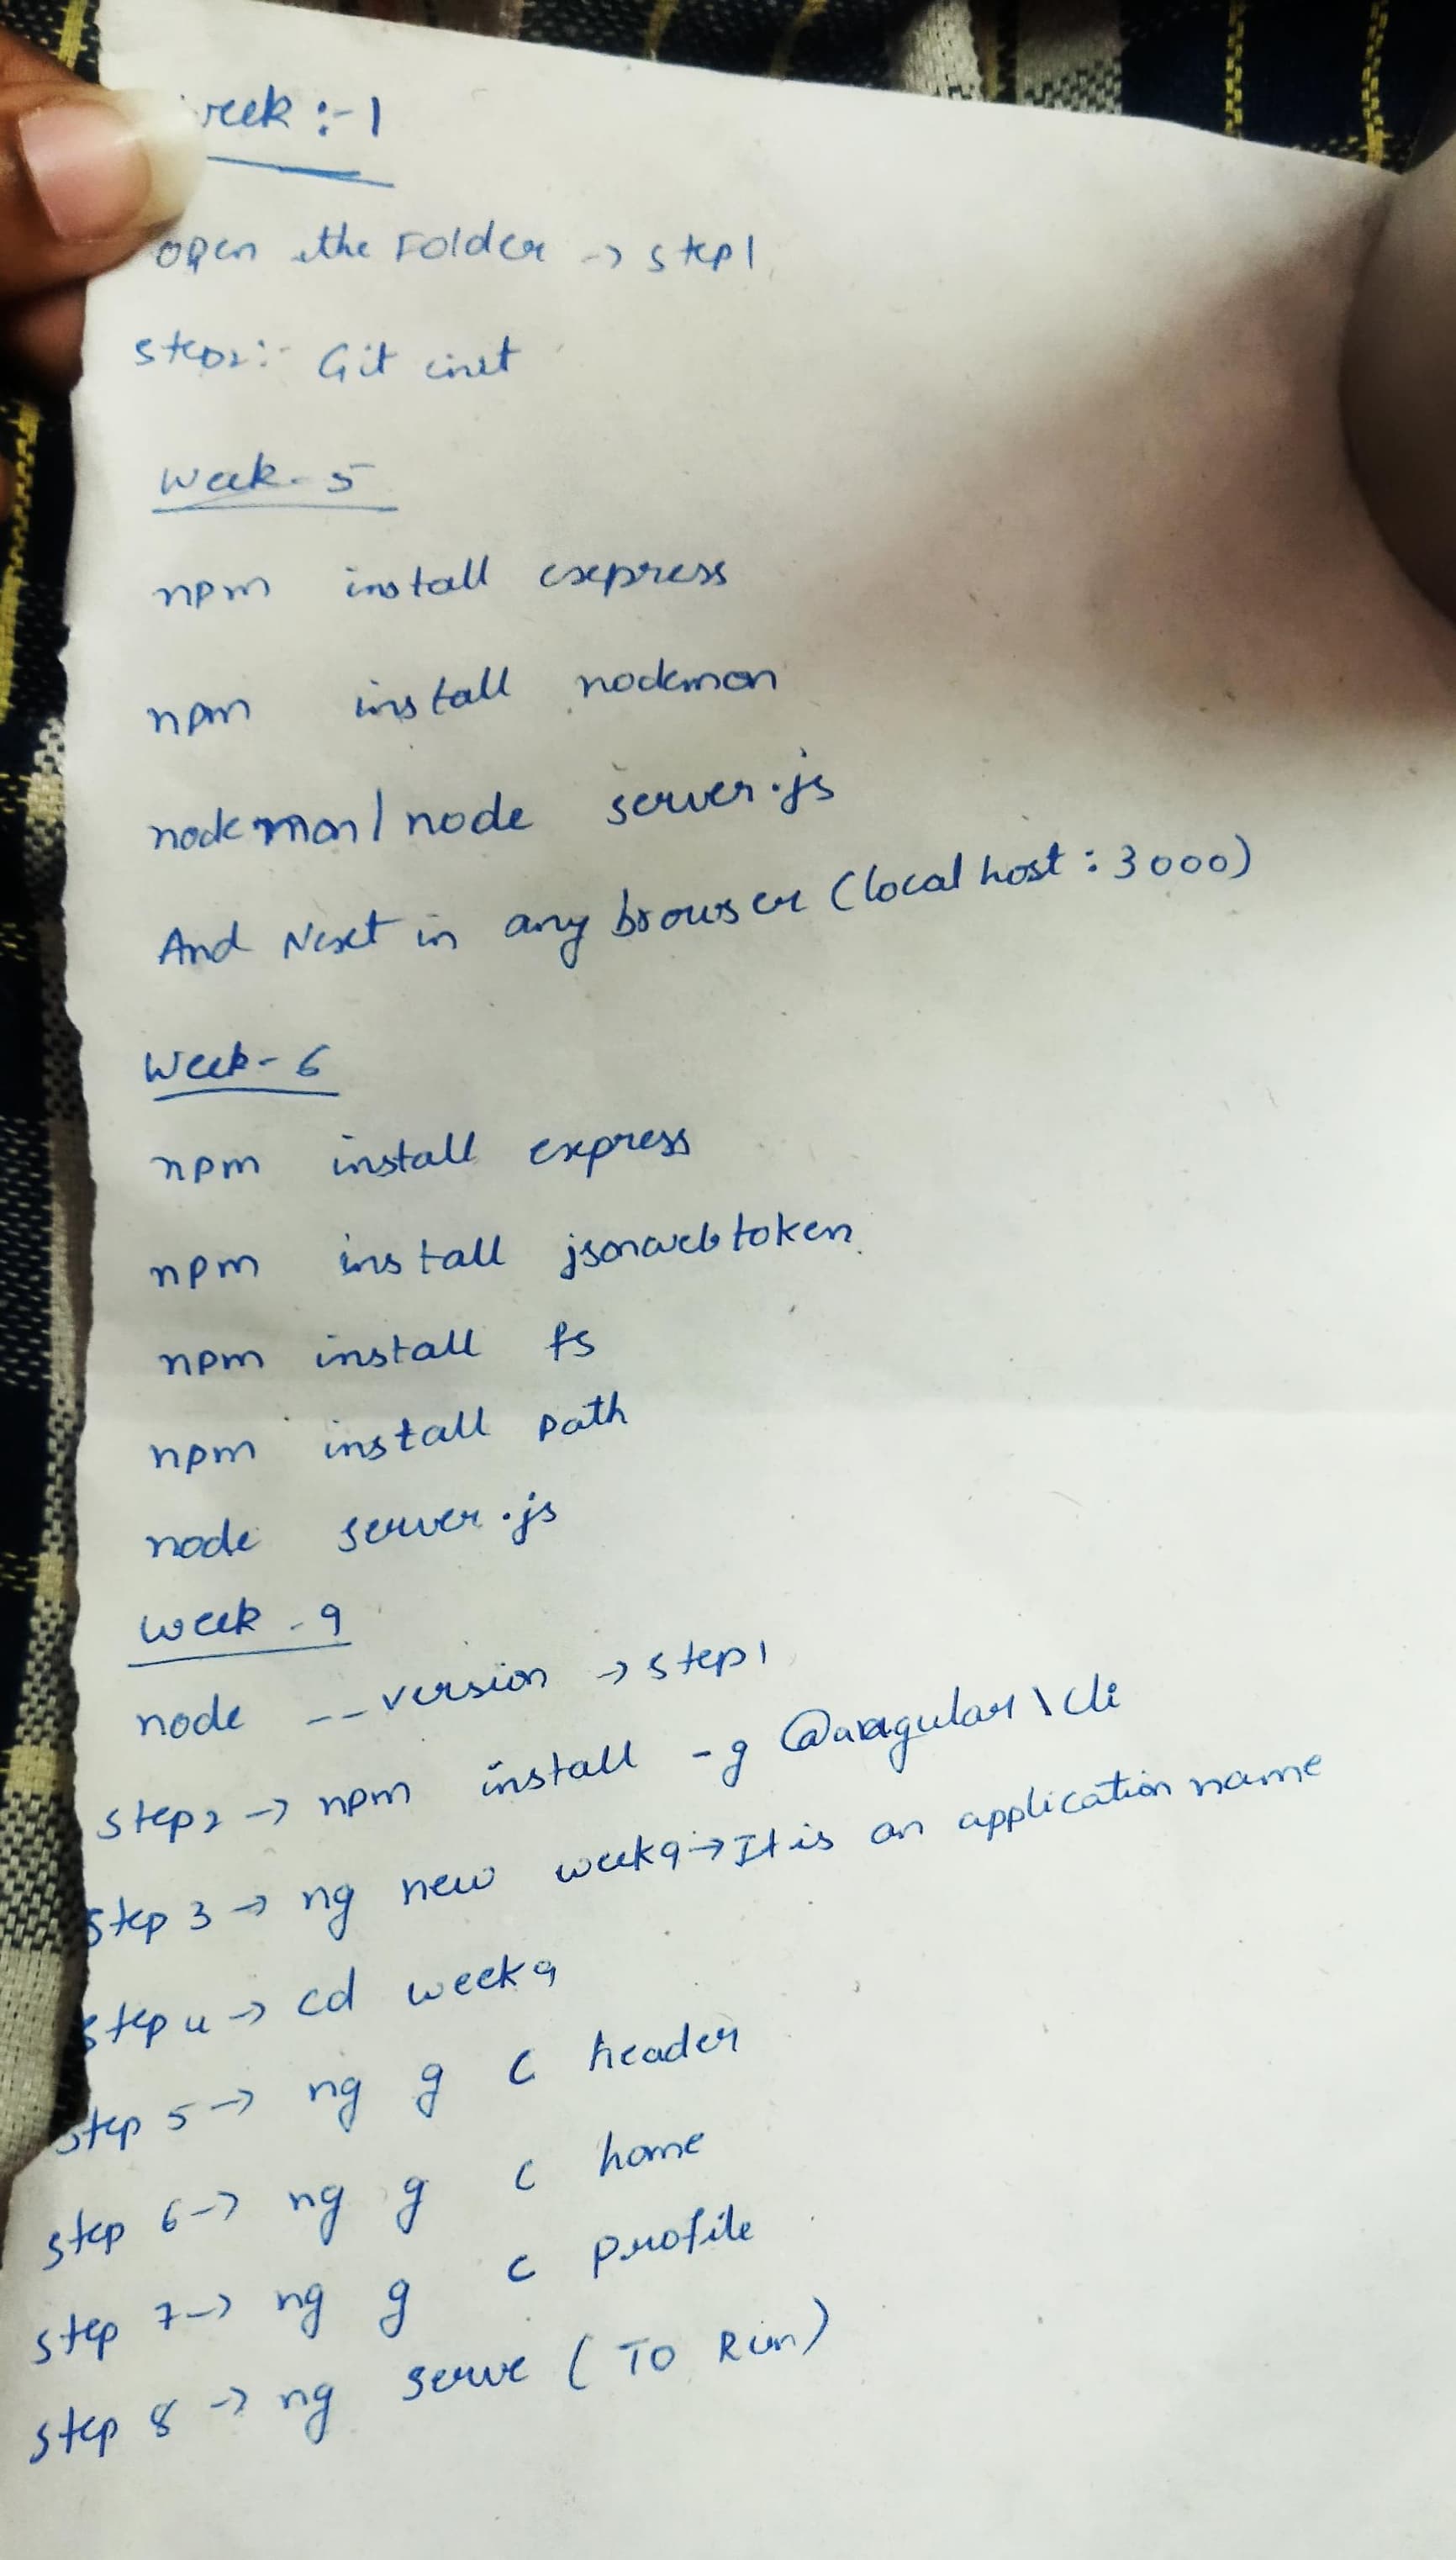 week :- 1
open the Folder -> step1
step2:- Git init
Week - 5
npm install express
npm install nodemon
nodemon / node server.js
And Next in any browser (localhost : 3000)
Week - 6
npm install express
npm install jsonwebtoken
npm install fs
npm install path
node server.js
week - 9
node --version -> step1
step2 -> npm install -g @angular\cli
step 3 -> ng new week9 -> It is an application name
step 4 -> cd week9
step 5 -> ng g c header
step 6 -> ng g c home
step 7 -> ng g c profile
step 8 -> ng serve ( TO Run)